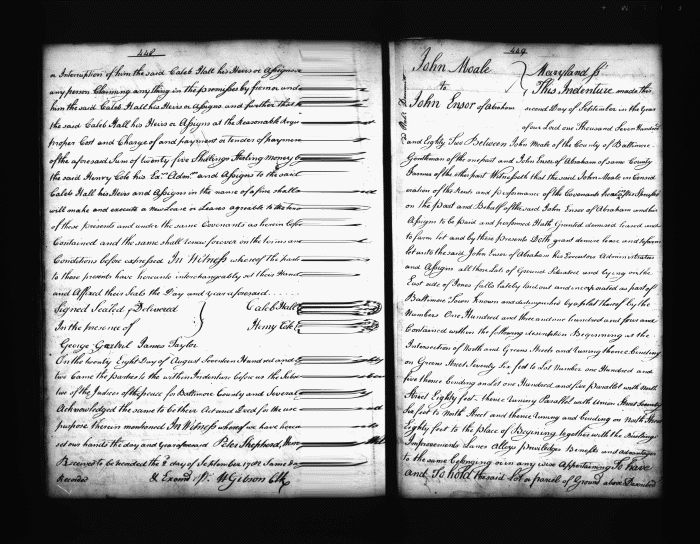 448
or Interruption of him the said Caleb Hall his Heirs or Assigns or
any person Claiming any thing in the premises by from or under
him the said Caleb Hall his Heirs or Assigns and further that
the said Caleb Hall his Heirs or Assigns at the Reasonable
proper Cost and Charge of and payment or tender of payment
of the aforesaid Sum of twenty five Shillings Sterling Money
the said Henry his and Assigns to the said
Caleb Hall his Heirs and Assigns in the name of a fine shall
will make and execute a new Lease or Leases agreeable to the
of these presents and under the same Covenants as herein
Contained and the same shall renew forever on the terms and
Conditions before expressed In Witness whereof the parties
to these presents have hereunto interchangeably set their Hands
and Affixed their Seals the Day and year aforesaid
Signed Sealed & Delivered } Caleb Hall
In the presence of Henry
George James Taylor
On the twenty Eight Day of August Seventeen Hundred and
two Came the parties to the within Indenture before us the
two of the Justices of the peace for Baltimore County and
Acknowledged the same to be their Act and Deed for the use
purpose therein mentioned In Witness whereof we have
set our hands the day and year aforesaid Peter Shepherd,
Received to be recorded the 2 day of September 1782 Same day
Recorded & Exam'd W Gibson Clk
449
John Moale } Maryland ss
to This Indenture made this
John Ensor of Abraham second Day of September in the Year
of our Lord one Thousand Seven Hundred
and Eighty Two Between John Moale of the County of Baltimore
Gentleman of the one part and John Ensor of Abraham of same County
Farmer of the other part Witnesseth that the said John Moale in Consid
eration of the Rents and performance of the Covenants
on the Part and Behalf of the said John Ensor of Abraham and his
Assigns to be paid and performed Hath Granted demised leased and
to farm let and by these Presents Doth grant demise lease and to farm
let unto the said John Ensor of Abraham his Executors Administrators
and Assigns all them Lots of Ground Situated and lying on the
East side of Jones falls lately laid out and as part of
Baltimore Town Known and distinguished by a plot thereof by the
Numbers One Hundred and three and one hundred and four and
Contained within the following description Beginning at the
Intersection of North and Green Streets and running thence binding
on Green Street Seventy Six feet to Lot Number one Hundred and
five thence binding on Lot one Hundred and five Parallel with North
Street Eighty feet thence running Parallel with Union Street Seventy
Six feet to North Street and thence running and binding on North Street
Eighty feet to the place of Beginning together with the Buildings
Improvements Lanes Alleys priviledges Benefits and Advantages
to the same belonging or in any wise Appertaining To have
and To hold the said Lot or parcel of Ground above Described